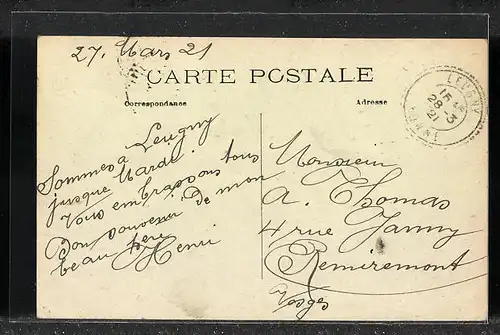 27. Mars 21
CARTE POSTALE
Correspondance
Adresse
LEUGNY
15
28-3
21
YONNE
Sommes à Leugny
jusque Mardi
Vous embrassons tous
Bon souvenir de mon
beau père
Henri
Monsieur
A. Thomas
4 rue Janny
Remiremont
Vosges